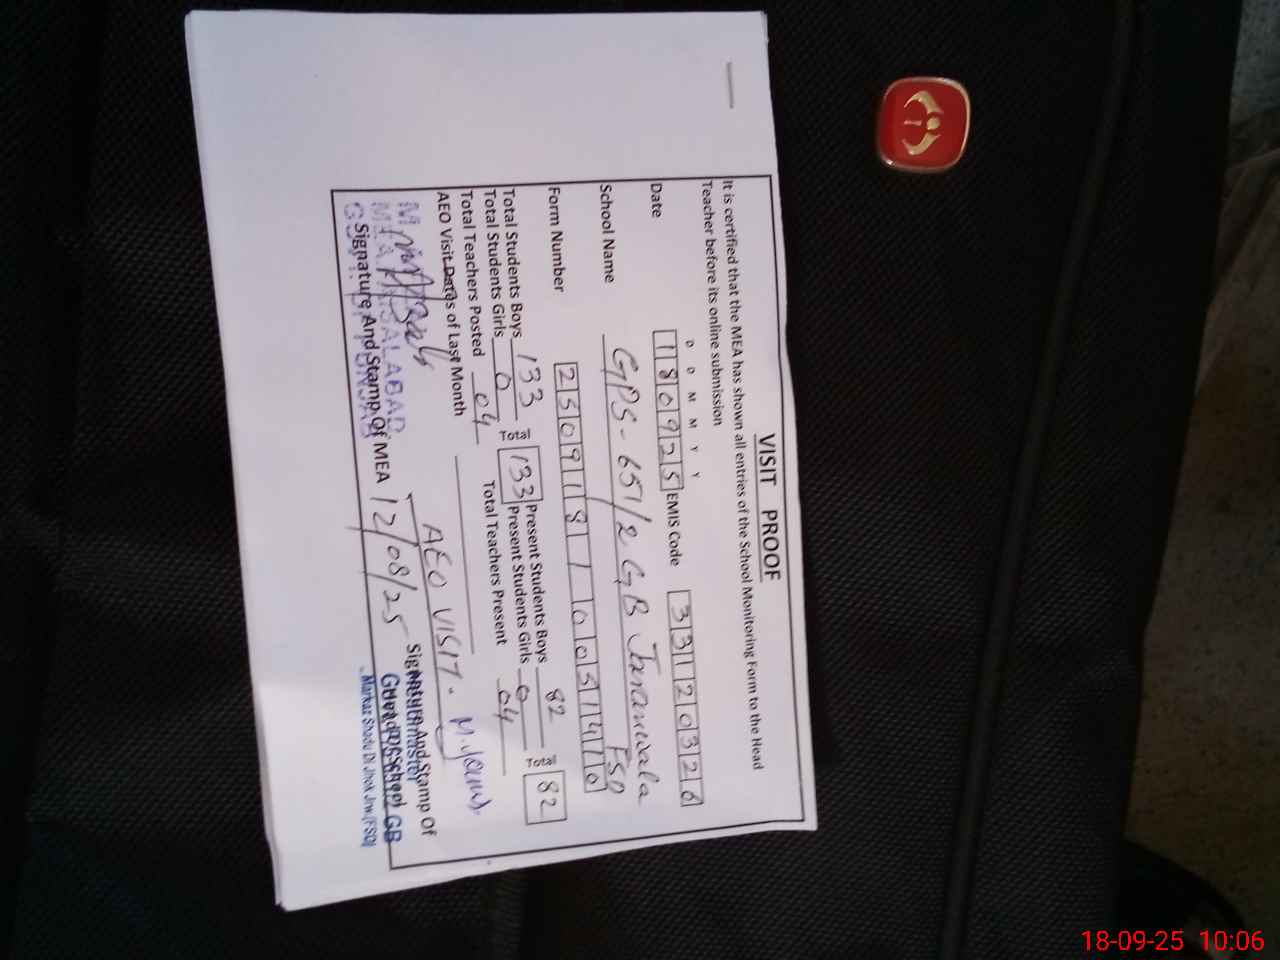 VISIT PROOF
It is certified that the MEA has shown all entries of the School Monitoring Form to the Head
Teacher before its online submission
D D M M Y Y
Date 180925 EMIS Code 33120326
School Name GPS-651/2 GB Jaranwala FSD
Form Number
Total Students Boys 133 Total 133 Present Students Boys 82 Total 82
Total Students Girls 0 Present Students Girls 0
Total Teachers Posted 04 Total Teachers Present 04
AEO Visit Dates of Last Month
AEO VISIT. M. Younis
12/08/25
Signature And Stamp Of MEA
MEA FAISALABAD
Signature And Stamp Of
Markaz Shadu Di Jhok Jrw.(FSD)
18-09-25 10:06